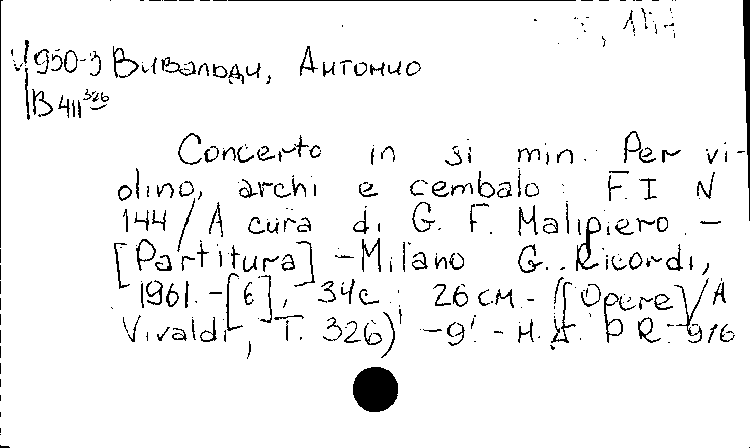 V 950-3 Вивальди, Антонио
В 411 326
Concerto in si min. Per vi-
olino, archi e cembalo: F. I N
144 / A cura di G. F. Malipiero. -
[Partitura] - Milano G. Ricordi,
1961. - [6], 34 с.; 26 см. - ([Opere] / A
Vivaldi, T. 326) - 9'. - Н. д. P. R. 916